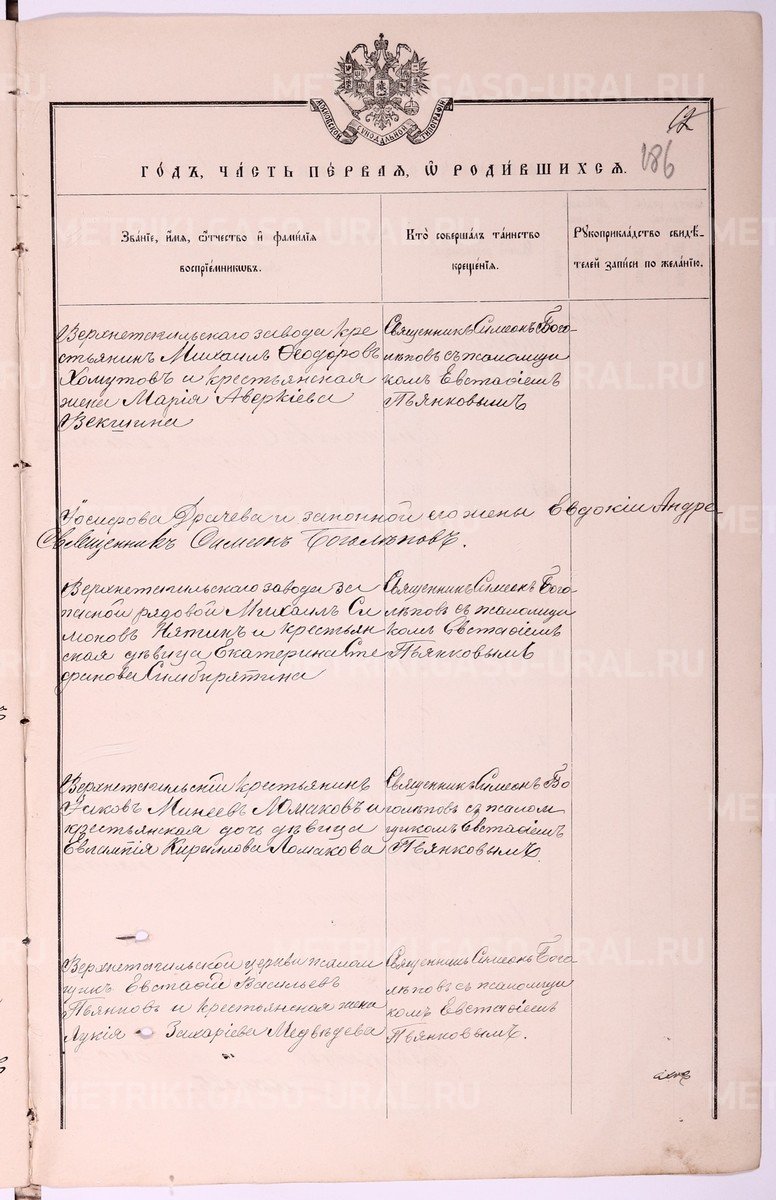 МОСКОВСКОЙ СѴНОДАЛЬНОЙ ТИПОГРАФІИ
186
ГО́ДЪ, ЧА́СТЬ ПЕ́РВАѦ, Ѡ҆ РОДИ́ВШИХСѦ.
Зва́нїе, и҆́мѧ, ѻ҆́тчество и҆ фами́лїѧ
воспрїе́мникѡвъ.
Кто̀ соверша́лъ та́инство
креще́нїѧ.
Рꙋкоприкла́дство свидѣ́-
телей за́писи по жела́нїю.
Верхнетагильскаго завода кре
стьянинъ Михаилъ Ѳеодоровъ
Хомутовъ и крестьянская
жена Марія Аверкіева
Векшина
Священникъ Симеонъ Бого-
лѣповъ съ псаломщи
комъ Евстафіемъ
Пьянковымъ
Іосифова Драчева и законной его жены Евдокіи Андре-
Священникъ Симеонъ Боголѣповъ.
Верхнетагильскаго завода за
пасной рядовой Михаилъ Си
моновъ Пятинъ и крестьян
ская дѣвица Екатерина Сте
фанова Симбирятина
Священникъ Симеонъ Бого-
лѣповъ съ псаломщи
комъ Евстафіемъ
Пьянковымъ
Верхнетагильскій крестьянинъ
Іаковъ Минеевъ Ломаковъ и
крестьянская дочь дѣвица
Евлампія Кириллова Ломакова
Священникъ Симеонъ Бо
голѣповъ съ псалом
щикомъ Евстафіемъ
Пьянковымъ.
Верхнетагильской церкви псалом
щикъ Евстафій Васильевъ
Пьянковъ и крестьянская жена
Лукія Захаріева Медвѣдева
Священникъ Симеонъ Бого
лѣповъ съ псаломщи
комъ Евстафіемъ
Пьянковымъ.
METRIKI.GASO-URAL.RU